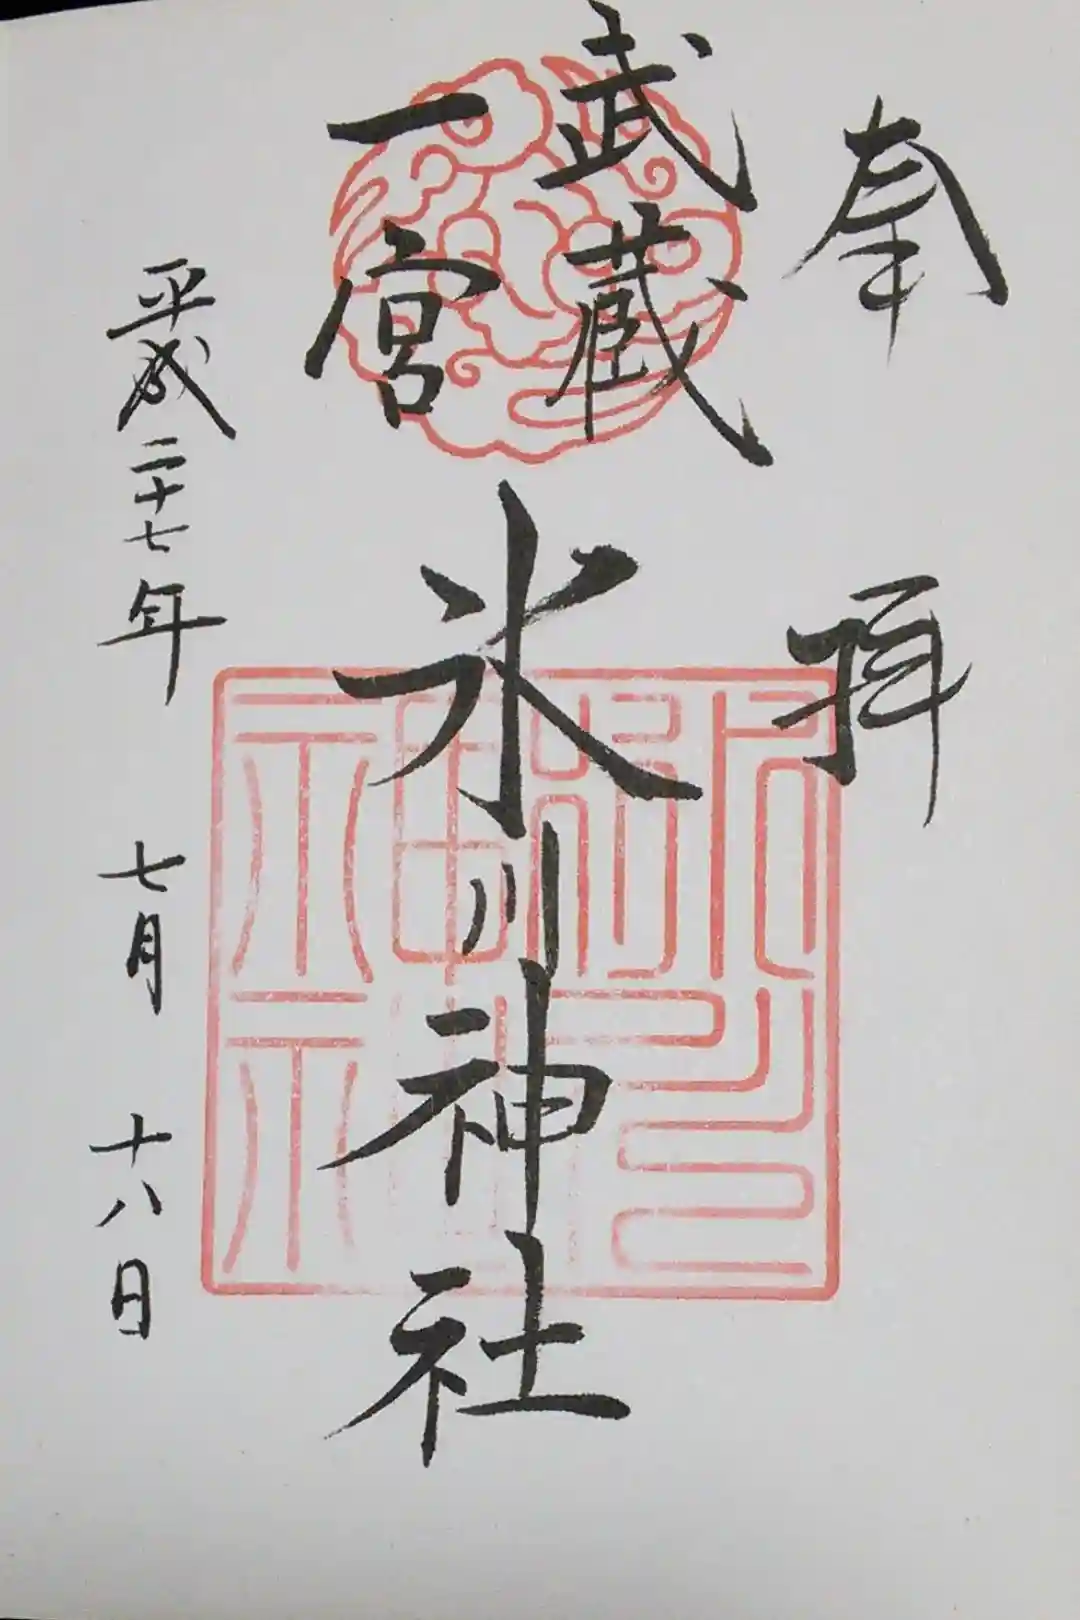 奉拝
武蔵
一宮
氷川神社
平成二十七年七月十八日